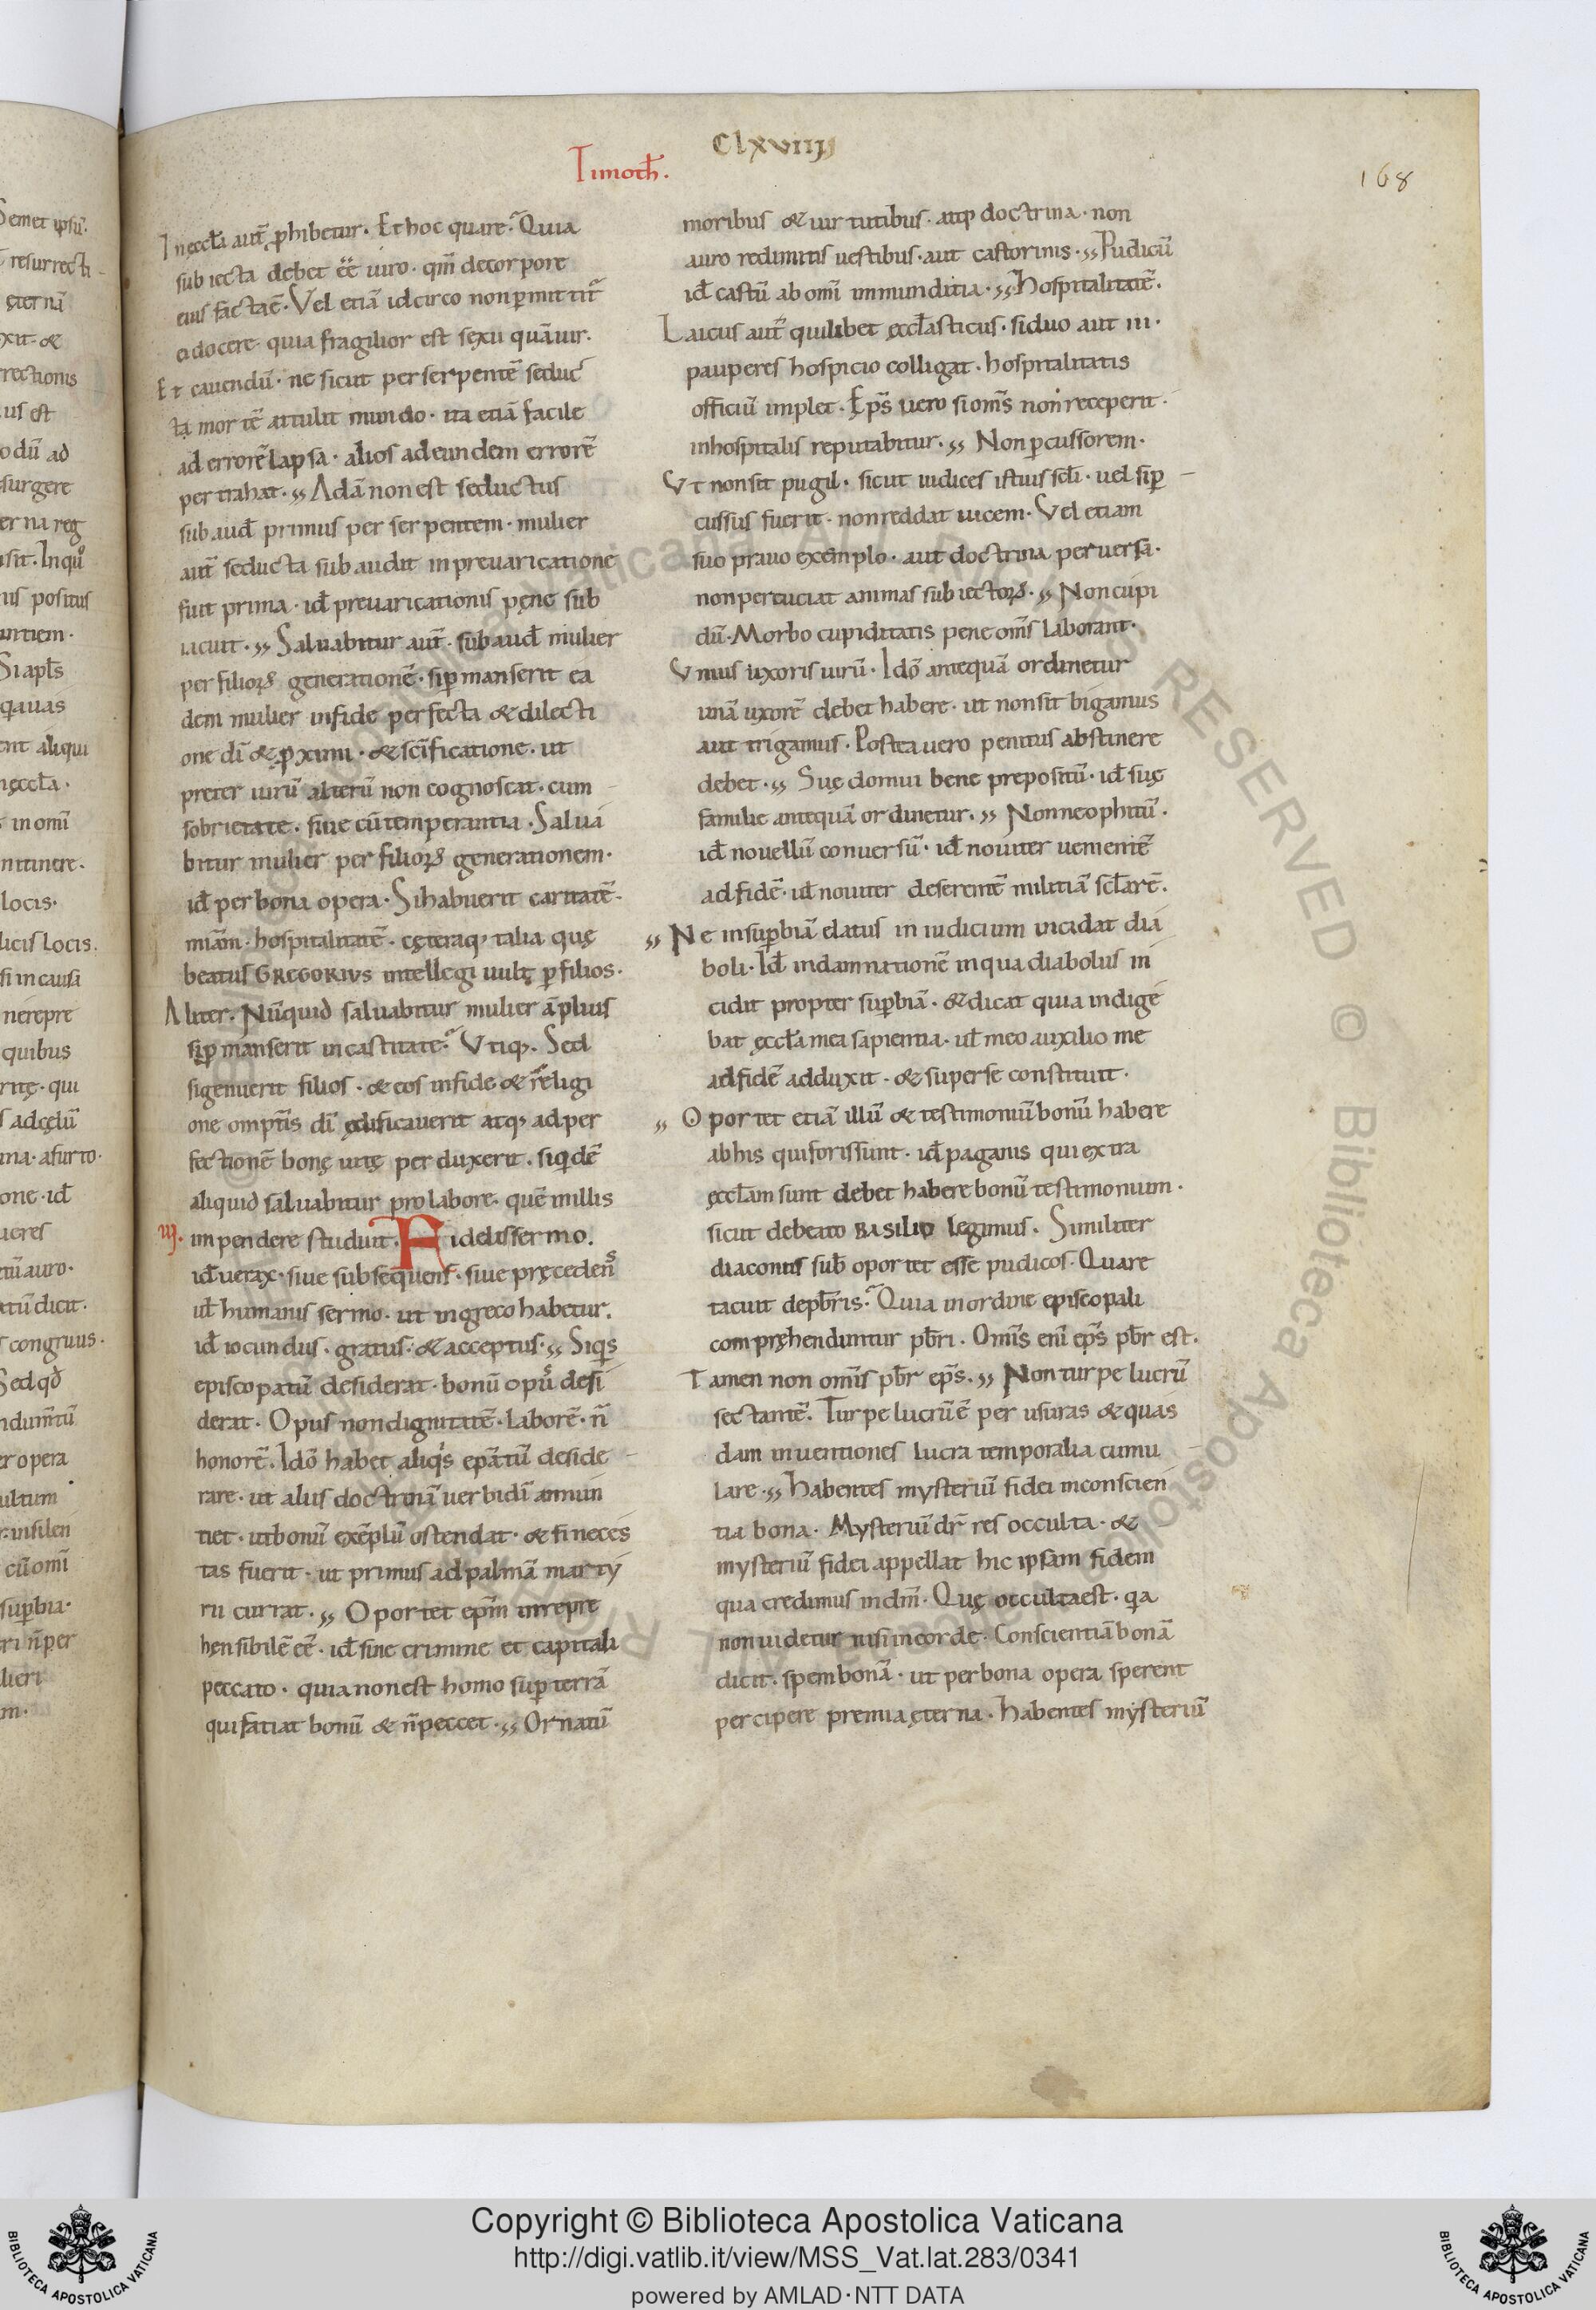 Clxviiij
Timoth̄.
168
In ęccƚa aut̃ ꝓhibetur. Et hoc quare? Quia
subiecta debet ēē uiro. qm̄ de corpore
eius facta ē. Vel etiā idcirco non ꝑmittit̃
ei docere. quia fragilior est sexu quā uir.
Et cauendū. ne sicut per serpentē seduc
ta mortē attulit mundo. ita etiā facile
ad errorē lapsa. alios ad eundem errorē
pertrahat. ,, Adā non est seductus
subaud̄ primus per serpentem. mulier
aut̃ seducta subaudit in preuaricatione
fuit prima. id̄ preuaricationis pęne sub
iacuit. ,, Saluabitur aut̃. subaud̄ mulier
per filioꝝ generationē. si ꝑmanserit ea
dem mulier in fide perfecta & dilecti
one dī & ꝓximi. & sc̄ificatione. ut
preter uirū alterū non cognoscat. cum
sobrietate. siue cū temperantia. Salua
bitur mulier per filioꝝ generationem.
id̄ per bona opera. Si habuerit caritatē.
miām. hospitalitatē. cęteraq; talia quę
beatus GREGORIVS intellegi uult ꝑ filios.
Aliter. Nūquid saluabitur mulier ā pluis
si ꝑmanserit in castitate? Vtiq;. Sed
si genuerit filios. & eos in fide & religi
one omptīs dī ędificauerit atq; ad per
fectionē bonę uitę perduxerit. siqidē
aliquid saluabitur pro labore. quē in illis
iij. impendere studuit. Fidelis sermo.
id̄ uerax. siue subsequens. siue pręcedens
uƚ humanus sermo. ut in greco habetur.
id̄ iocundus. gratus. & acceptus. ,, Siqis
episcopatū desiderat. bonū opus desi
derat. Opus non dignitatē. laborē. ñ
honorē. Ideo habet aliqis ep̄atū deside
rare. ut aliis doctrinā uerbi dī annun
tiet. ut bonū exēplū ostendat. & si neces
tas fuerit. ut primus ad palmā marty
rii currat. ,, Oportet ep̄m inrepre
hęnsibilē ēē. id̄ sine crimine et capitali
peccato. quia non est homo suꝑ terrā
qui faciat bonū & ñ peccet. ,, Ornatū
moribus & uirtutibus. atq; doctrina. non
auro redimitis uestibus. aut castorinis. ,, Pudicū
id̄ castū ab omī inmunditia. ,, Hospitalitatē.
Laicus aut̃ quilibet ęccƚasticus. si duo aut iii.
pauperes hospicio colligat. hospitalitatis
officiū implet. Ep̄s uero si om̄s non receperit.
inhospitalis reputabitur. ,, Non ꝑcussorem.
Vt non sit pugil. sicut iudices istius scƚi. uel si ꝑ
cussus fuerit. non reddat uicem. Vel etiam
suo prauo exemplo. aut doctrina peruersa.
non percuciat animas subiectoꝝ. ,, Non cupi
dū. Morbo cupiditatis pene om̄s laborant.
Vnius uxoris uirū. Idō antequā ordinetur
unā uxorē debet habere. ut non sit bigamus
aut trigamus. Postea uero penitus abstinere
debet. ,, Suę domui bene prepositū. id̄ suę
familie antequā ordinetur. ,, Non neophitū.
id̄ nouellū conuersū. id̄ nouiter uenientē
ad fidē. uƚ nouiter deserentē militiā scƚarē.
,, Ne in suꝑbiā elatus in iudicium incidat dia
boli. Id̄ in damnationē in qua diabolus in
cidit propter suꝑbiā. & dicat quia indige
bat ęccƚa mea sapientia. uƚ meo auxilio me
ad fidē adduxit. & super se constituit.
,, Oportet etiā illū & testimoniū bonū habere
ab his qui foris sunt. id̄ paganis qui extra
ęccƚam sunt debet habere bonū testimonium.
sicut de beato BASILIO legimus. Similiter
diaconus sub̄ oportet esse pudicos. Quare
tacuit de pb̄ris? Quia in ordine episcopali
compręhenduntur pb̄ri. Omīs enī ep̄s pb̄r est.
Tamen non omīs pb̄r ep̄s. ,, Non turpe lucrū
sectantē. Turpe lucrū ē per usuras & quas
dam inuentiones lucra temporalia cumu
lare. ,, Habentes mysteriū fidei in conscien
tia bona. Mysteriū dr̄ res occulta. &
mysteriū fidei appellat hic ipsam fidem
qua credimus in dm̄. Quę occulta est. qia
non uidetur nisi in corde. Conscientiā bonā
dicit. spem bonā. ut per bona opera sperent
percipere premia ęterna. Habentes mysteriū
Copyright © Biblioteca Apostolica Vaticana
http://digi.vatlib.it/view/MSS_Vat.lat.283/0341
powered by AMLAD·NTT DATA